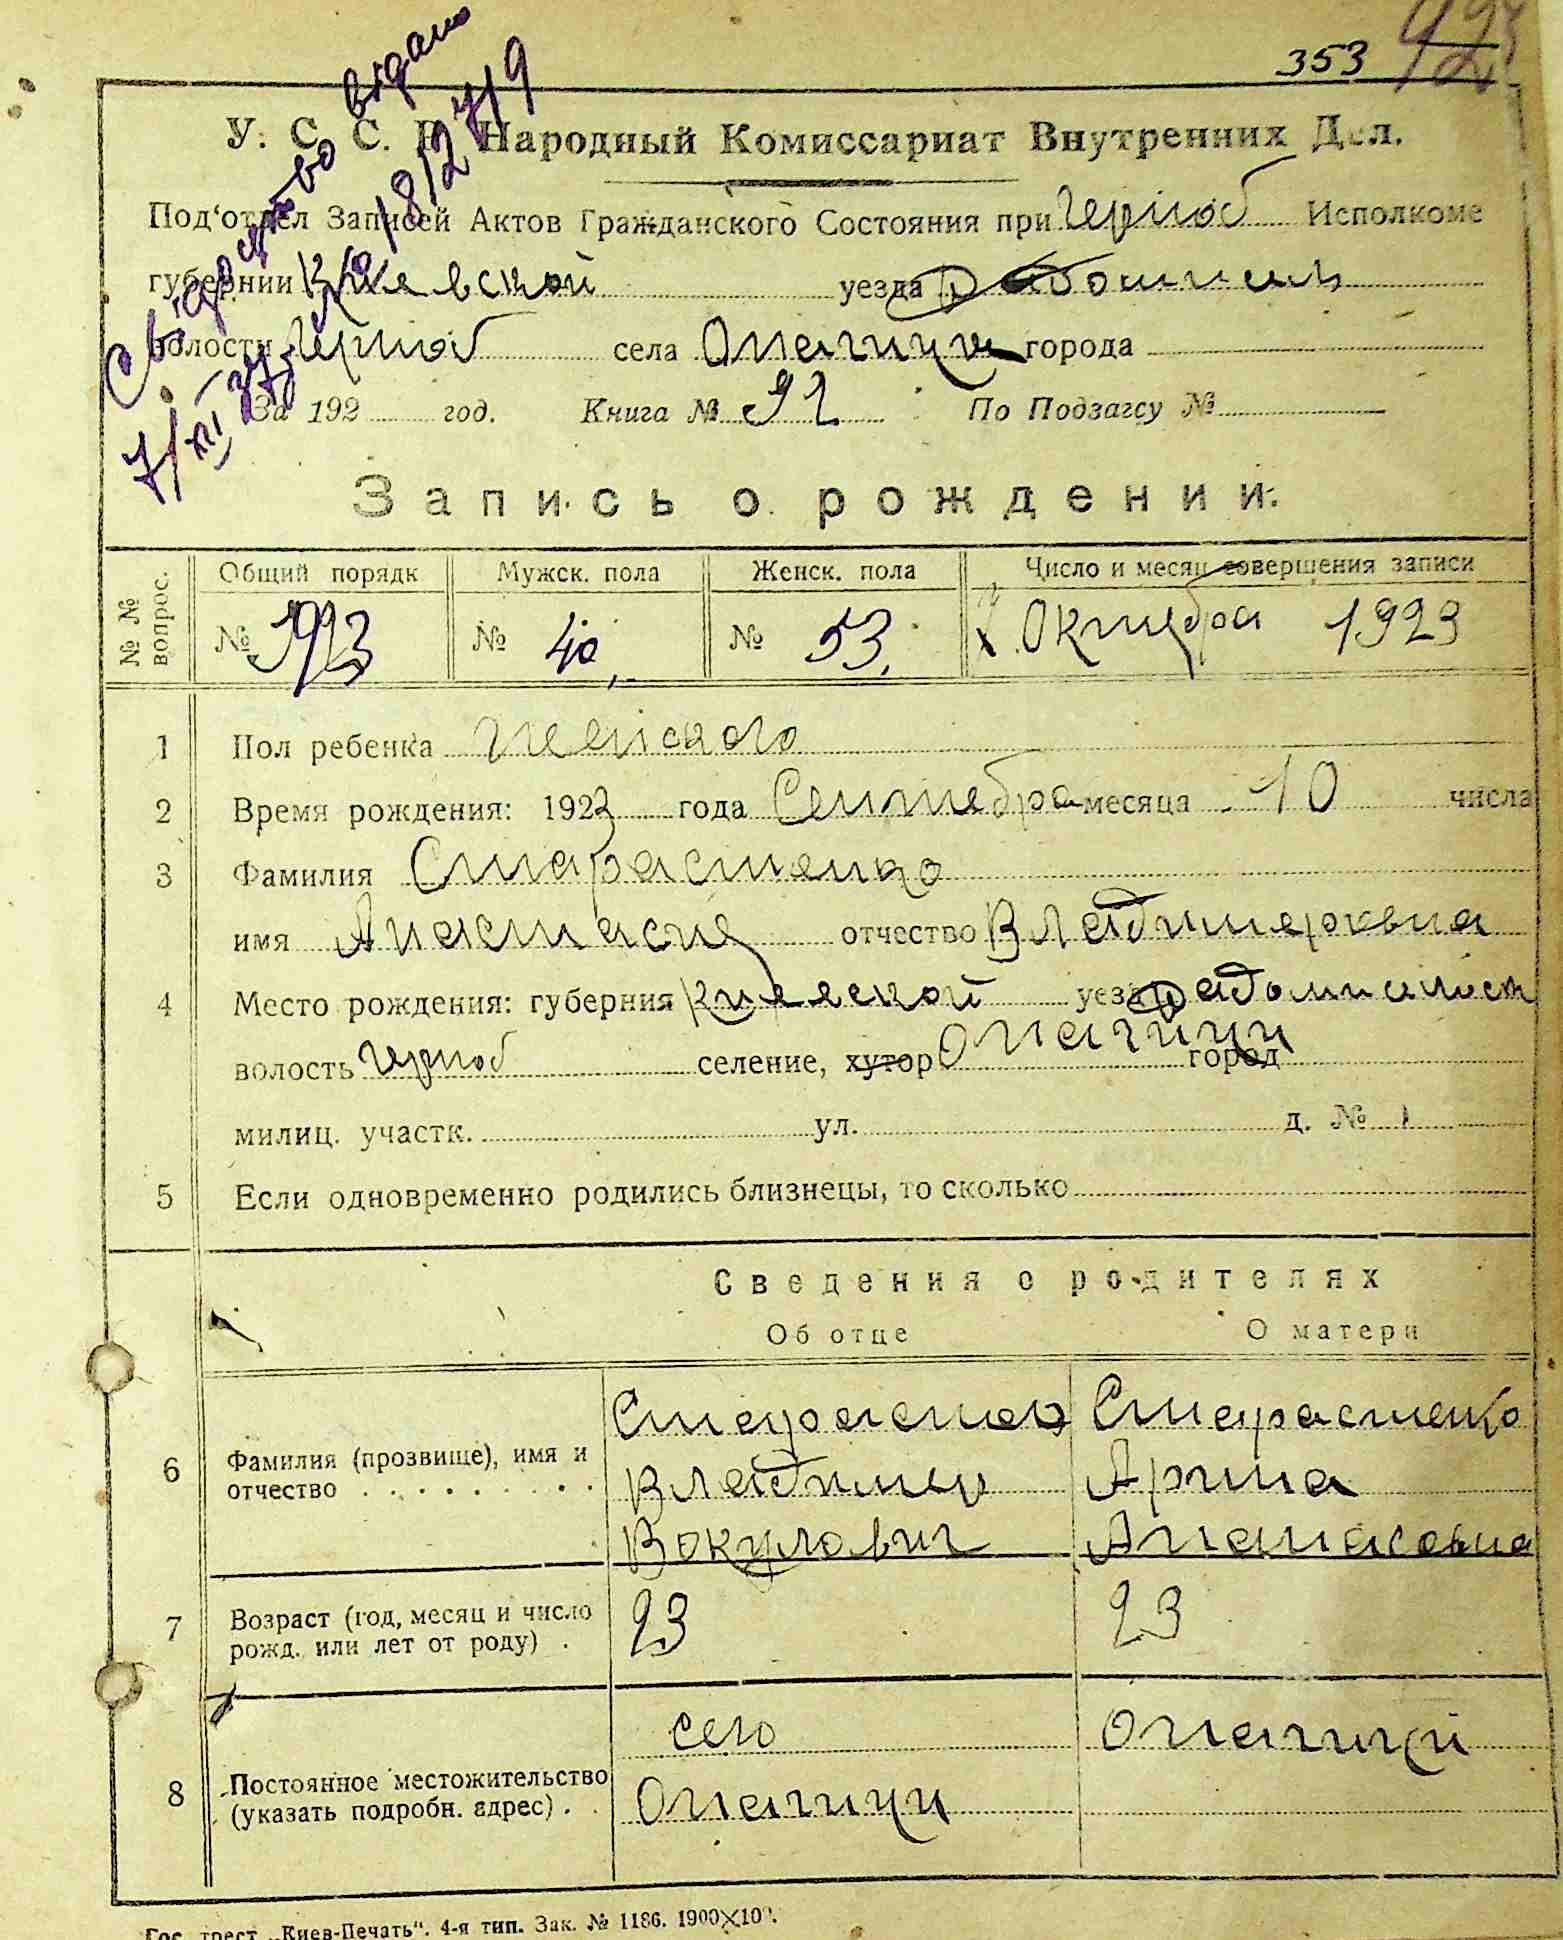 353
У. С. С. Р. Народный Комиссариат Внутренних Дел.
Под'отдел Записей Актов Гражданского Состояния при Черноб Исполкоме
губернии Киевской уезда Радомысль
волости Черноб села Опачичи города
За 192 год. Книга № 92 По Подзагсу №
Свидетельство выдано
7/XII 37
Запись о рождении.
№ № вопрос.
Общий порядк Мужск. пола Женск. пола Число и месяц совершения записи
№ № 40 № 53. Октебра 1923
1 Пол ребенка женского
2 Время рождения: 1923 года Сентебра месяца 10 числа
3 Фамилия Старастенко
имя Анастасия отчество Владимеровна
4 Место рождения: губерния Киевской уезд
волость Черноб селение, хутор Опачичи город
милиц. участк. ул. д. №
5 Если одновременно родились близнецы, то сколько
Сведения о родителях
Об отце О матери
6 Фамилия (прозвище), имя и отчество
Старастенко Старастенко
Владимер Арина
Вокулович Апанасовна
7 Возраст (год, месяц и число рожд. или лет от роду) 23 23
8 Постоянное местожительство (указать подробн. адрес)
село Опачичи
Опачичи
Гос. трест „Киев-Печать". 4-я тип. Зак. № 1186.